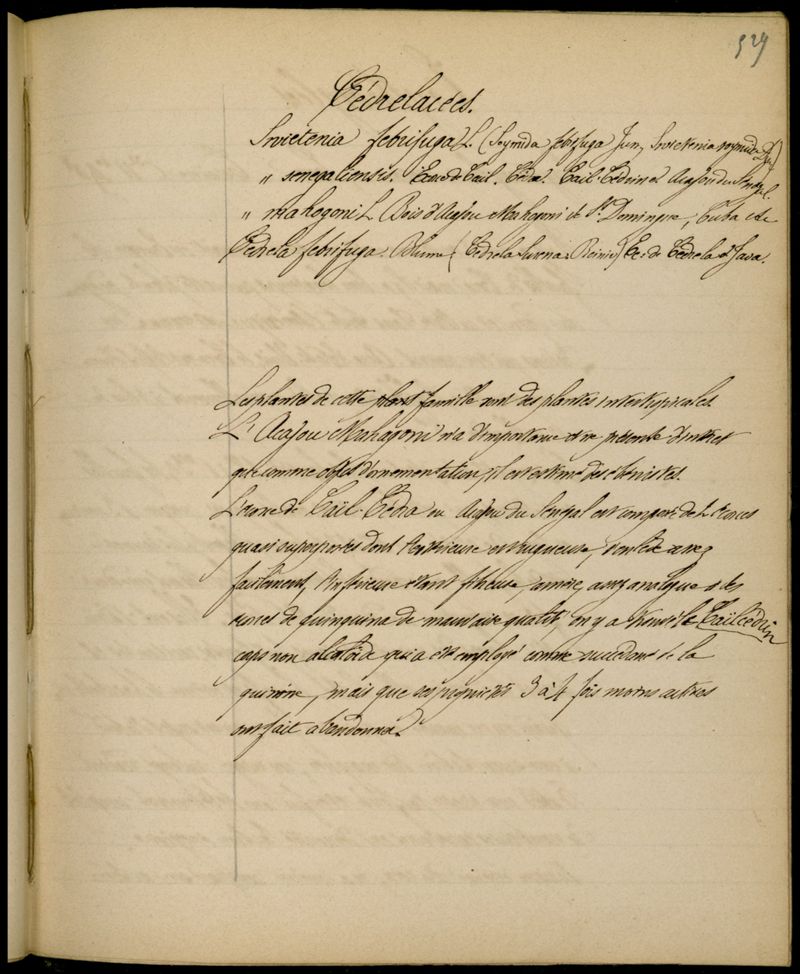 529
Cédrelacées.
Swietenia febrifuga L. (Soymida febrifuga Jun, Swietenia soymida Du)
" senegaliensis. Ecorce de Cail. Cédra. Cail-Cédrin et Acajou du Sénégal.
" mahogoni L Bois d'Acajou Mahogoni de St Domingue, Cuba etc
Cédrela febrifuga. Blume. (Cedrela turena Reinw) Ec. de Cédrela de Java.
Les plantes de cette plant famille sont des plantes intertropicales.
L'Acajou Mahogoni n'a d'importance et ne présente d'intérêt
que comme objet d'ornementation, il est estimé des ébénistes.
L'écorce de Caïl-Cédra ou Acajou du Sénégal est composé de 2 écorces
quasi superposées dont l'extérieure est rugueuse, s'enlève assez
facilement, l'intérieure étant fibreuse, amère, assez analogue à des
écorces de quinquina de mauvaise qualité, on y a trouvé le Caïlcédrin
corps non alcaloïde qui a été employé comme succédané de la
quinine, mais que ses propriétés 3 à 4 fois moins actives
ont fait abandonner.